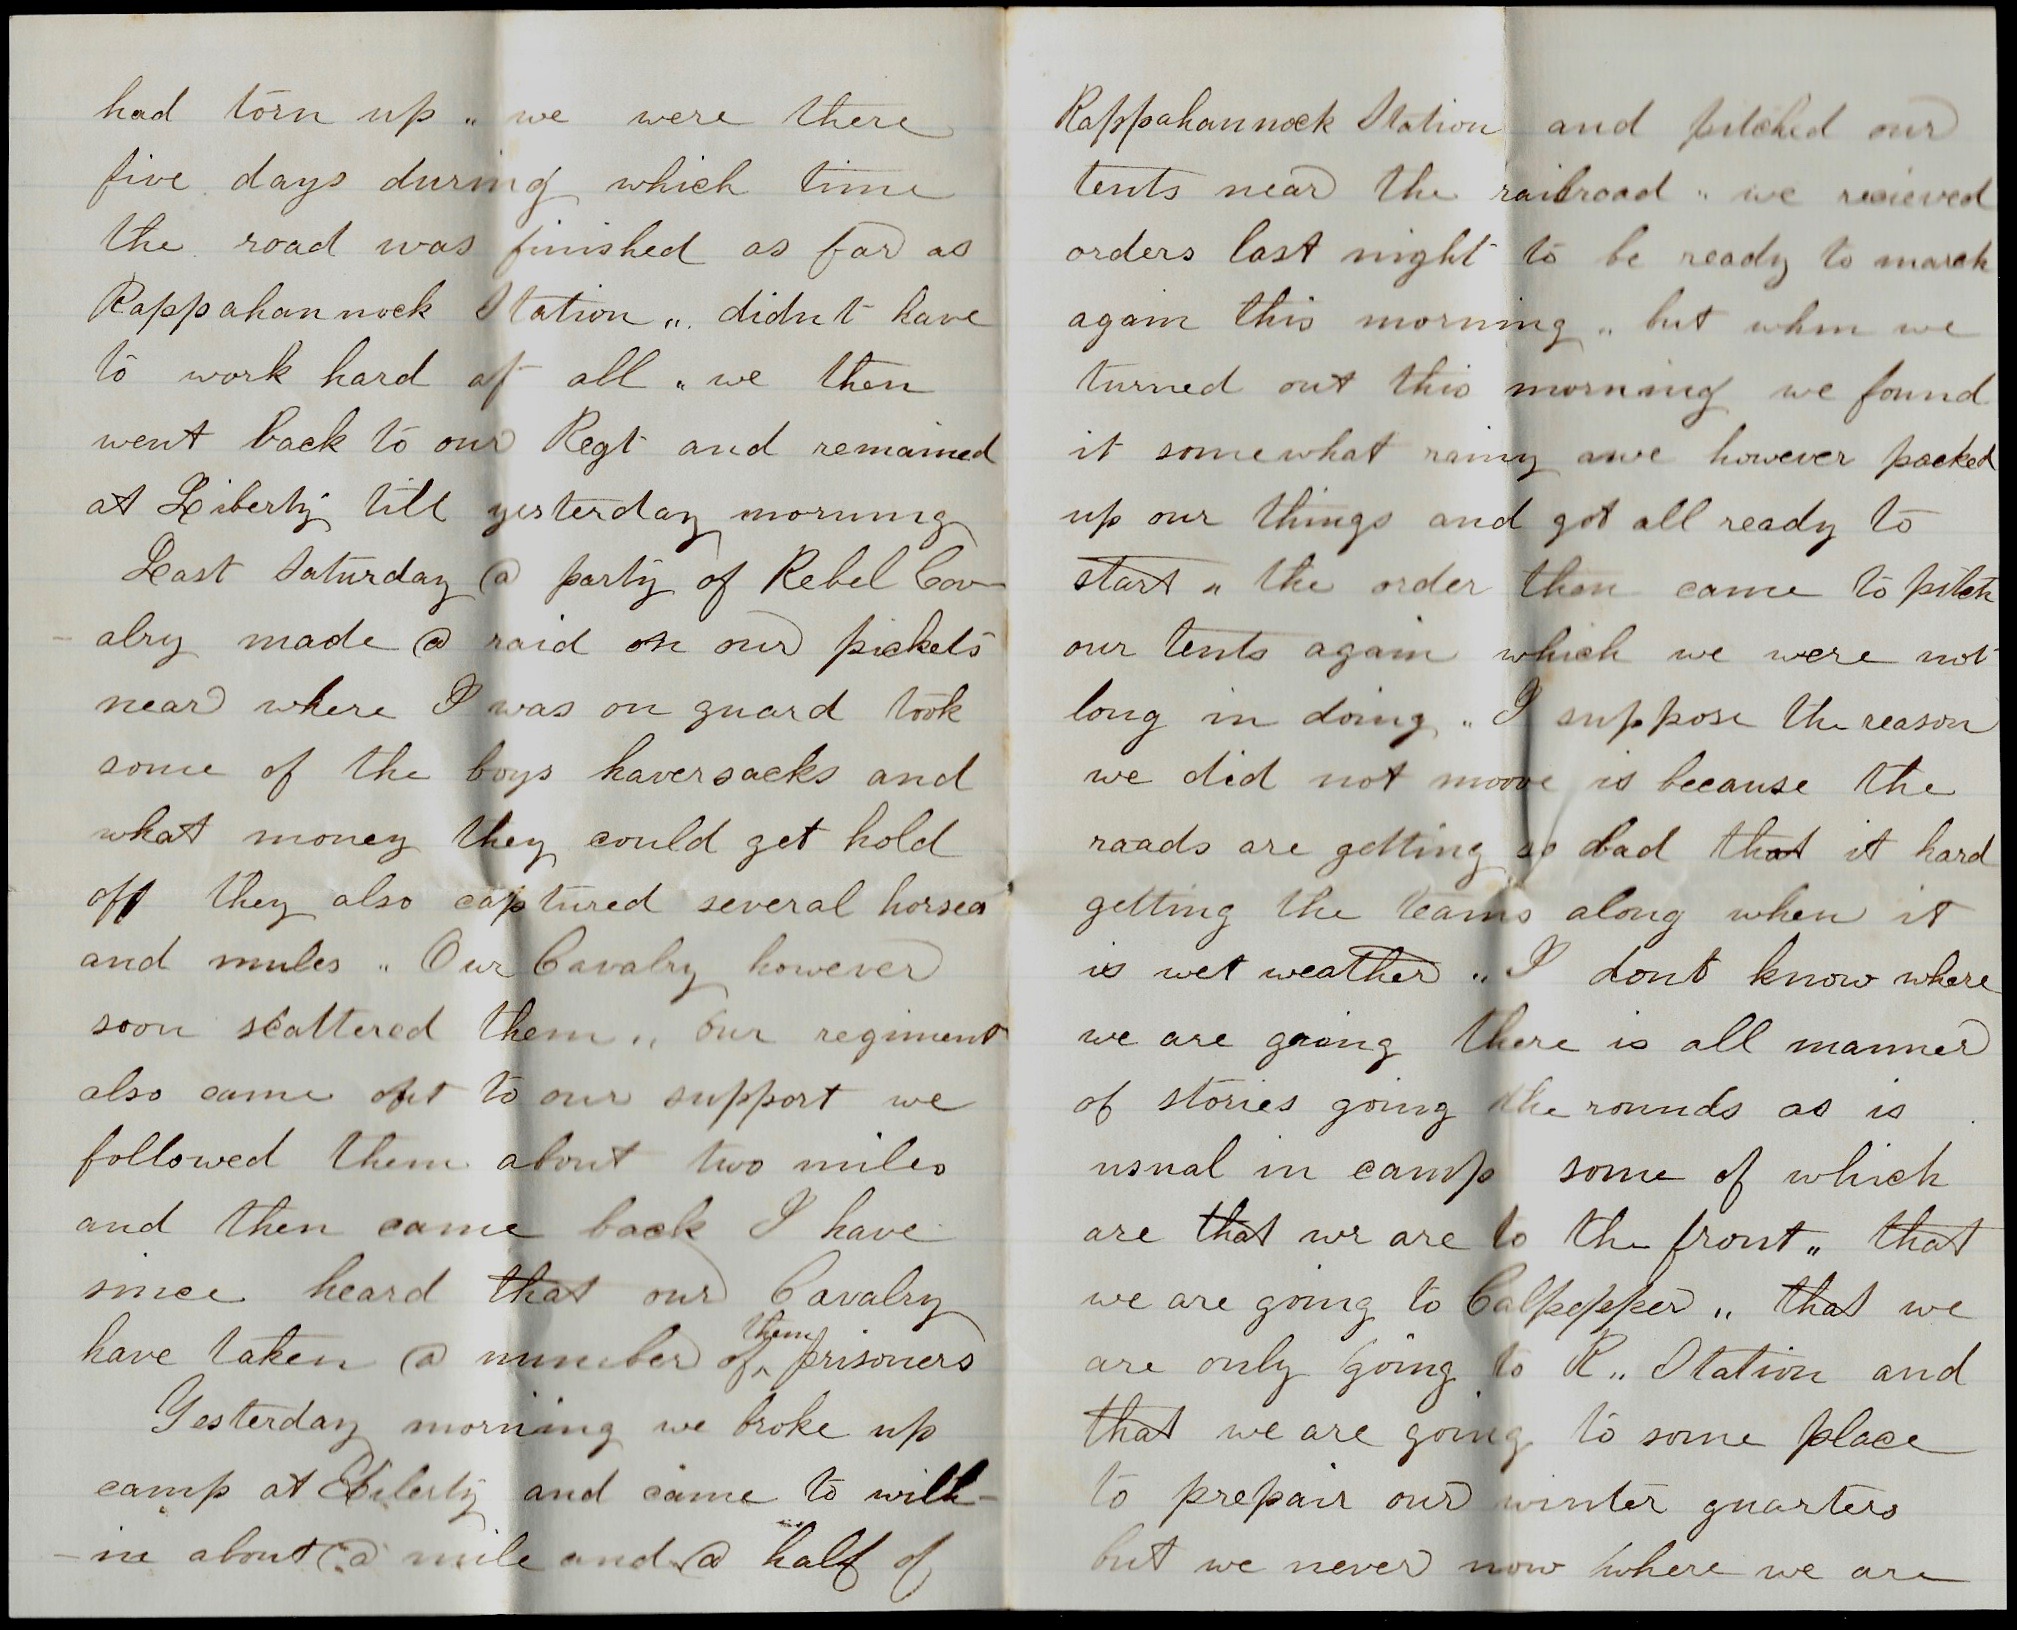 had torn up „ we were there
five days during which time
the road was finished as far as
Rappahannock Station „ didnt have
to work hard at all „ we then
went back to our Regt and remained
at Liberty till yesterday morning
Last Saturday a party of Rebel Cav-
-alry made a raid on our pickets
near where I was on guard took
some of the boys haversacks and
what money they could get hold
off they also captured several horses
and mules „ Our Cavalry however
soon scattered them „ our regiment
also came out to our support we
followed them about two miles
and then came back I have
since heard that our Cavalry
have taken a number of ^them prisoners
Yesterday morning we broke up
camp at Liberty and came to with-
-in about a mile and a half of
Rappahannock Station and pitched our
tents near the railroad „ we recieved
orders last night to be ready to march
again this morning „ but when we
turned out this morning we found
it somewhat rainy however packed
up our things and got all ready to
start „ the order then came to pitch
our tents again which we were not
long in doing „ I suppose the reason
we did not moove is because the
roads are getting so bad that it hard
getting the teams along when it
is wet weather „ I dont know where
we are going there is all manner
of stories going the rounds as is
usual in camp some of which
are that we are to the front „ that
we are going to Calpepper „ that we
are only going to R „ Station and
that we are going to some place
to prepair our winter quarters
but we never now where we are